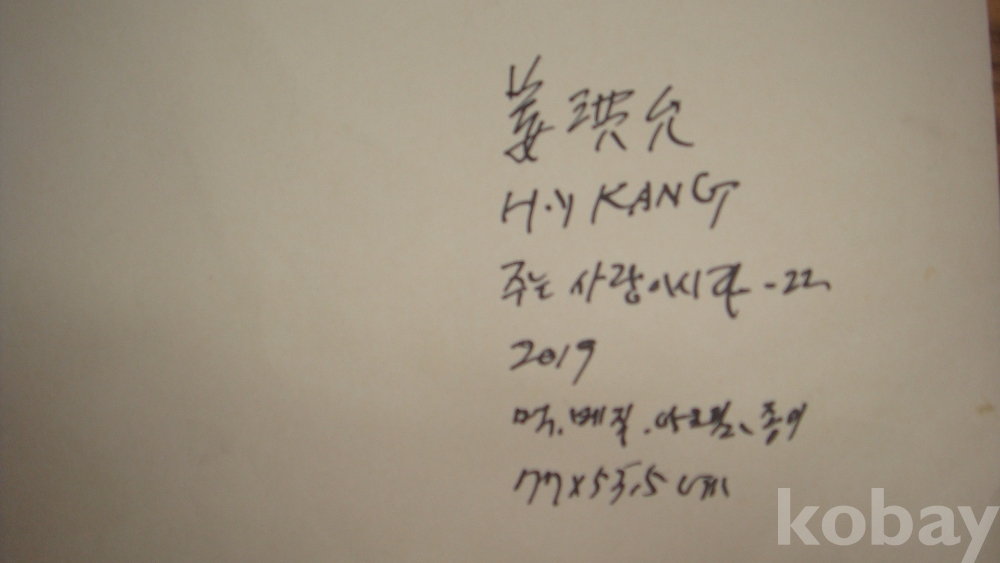 姜琪允
H.Y KANG
주는 사랑의시작 -22
2019
먹.베접.아크릴、종이
77x53.5 cm
kobay